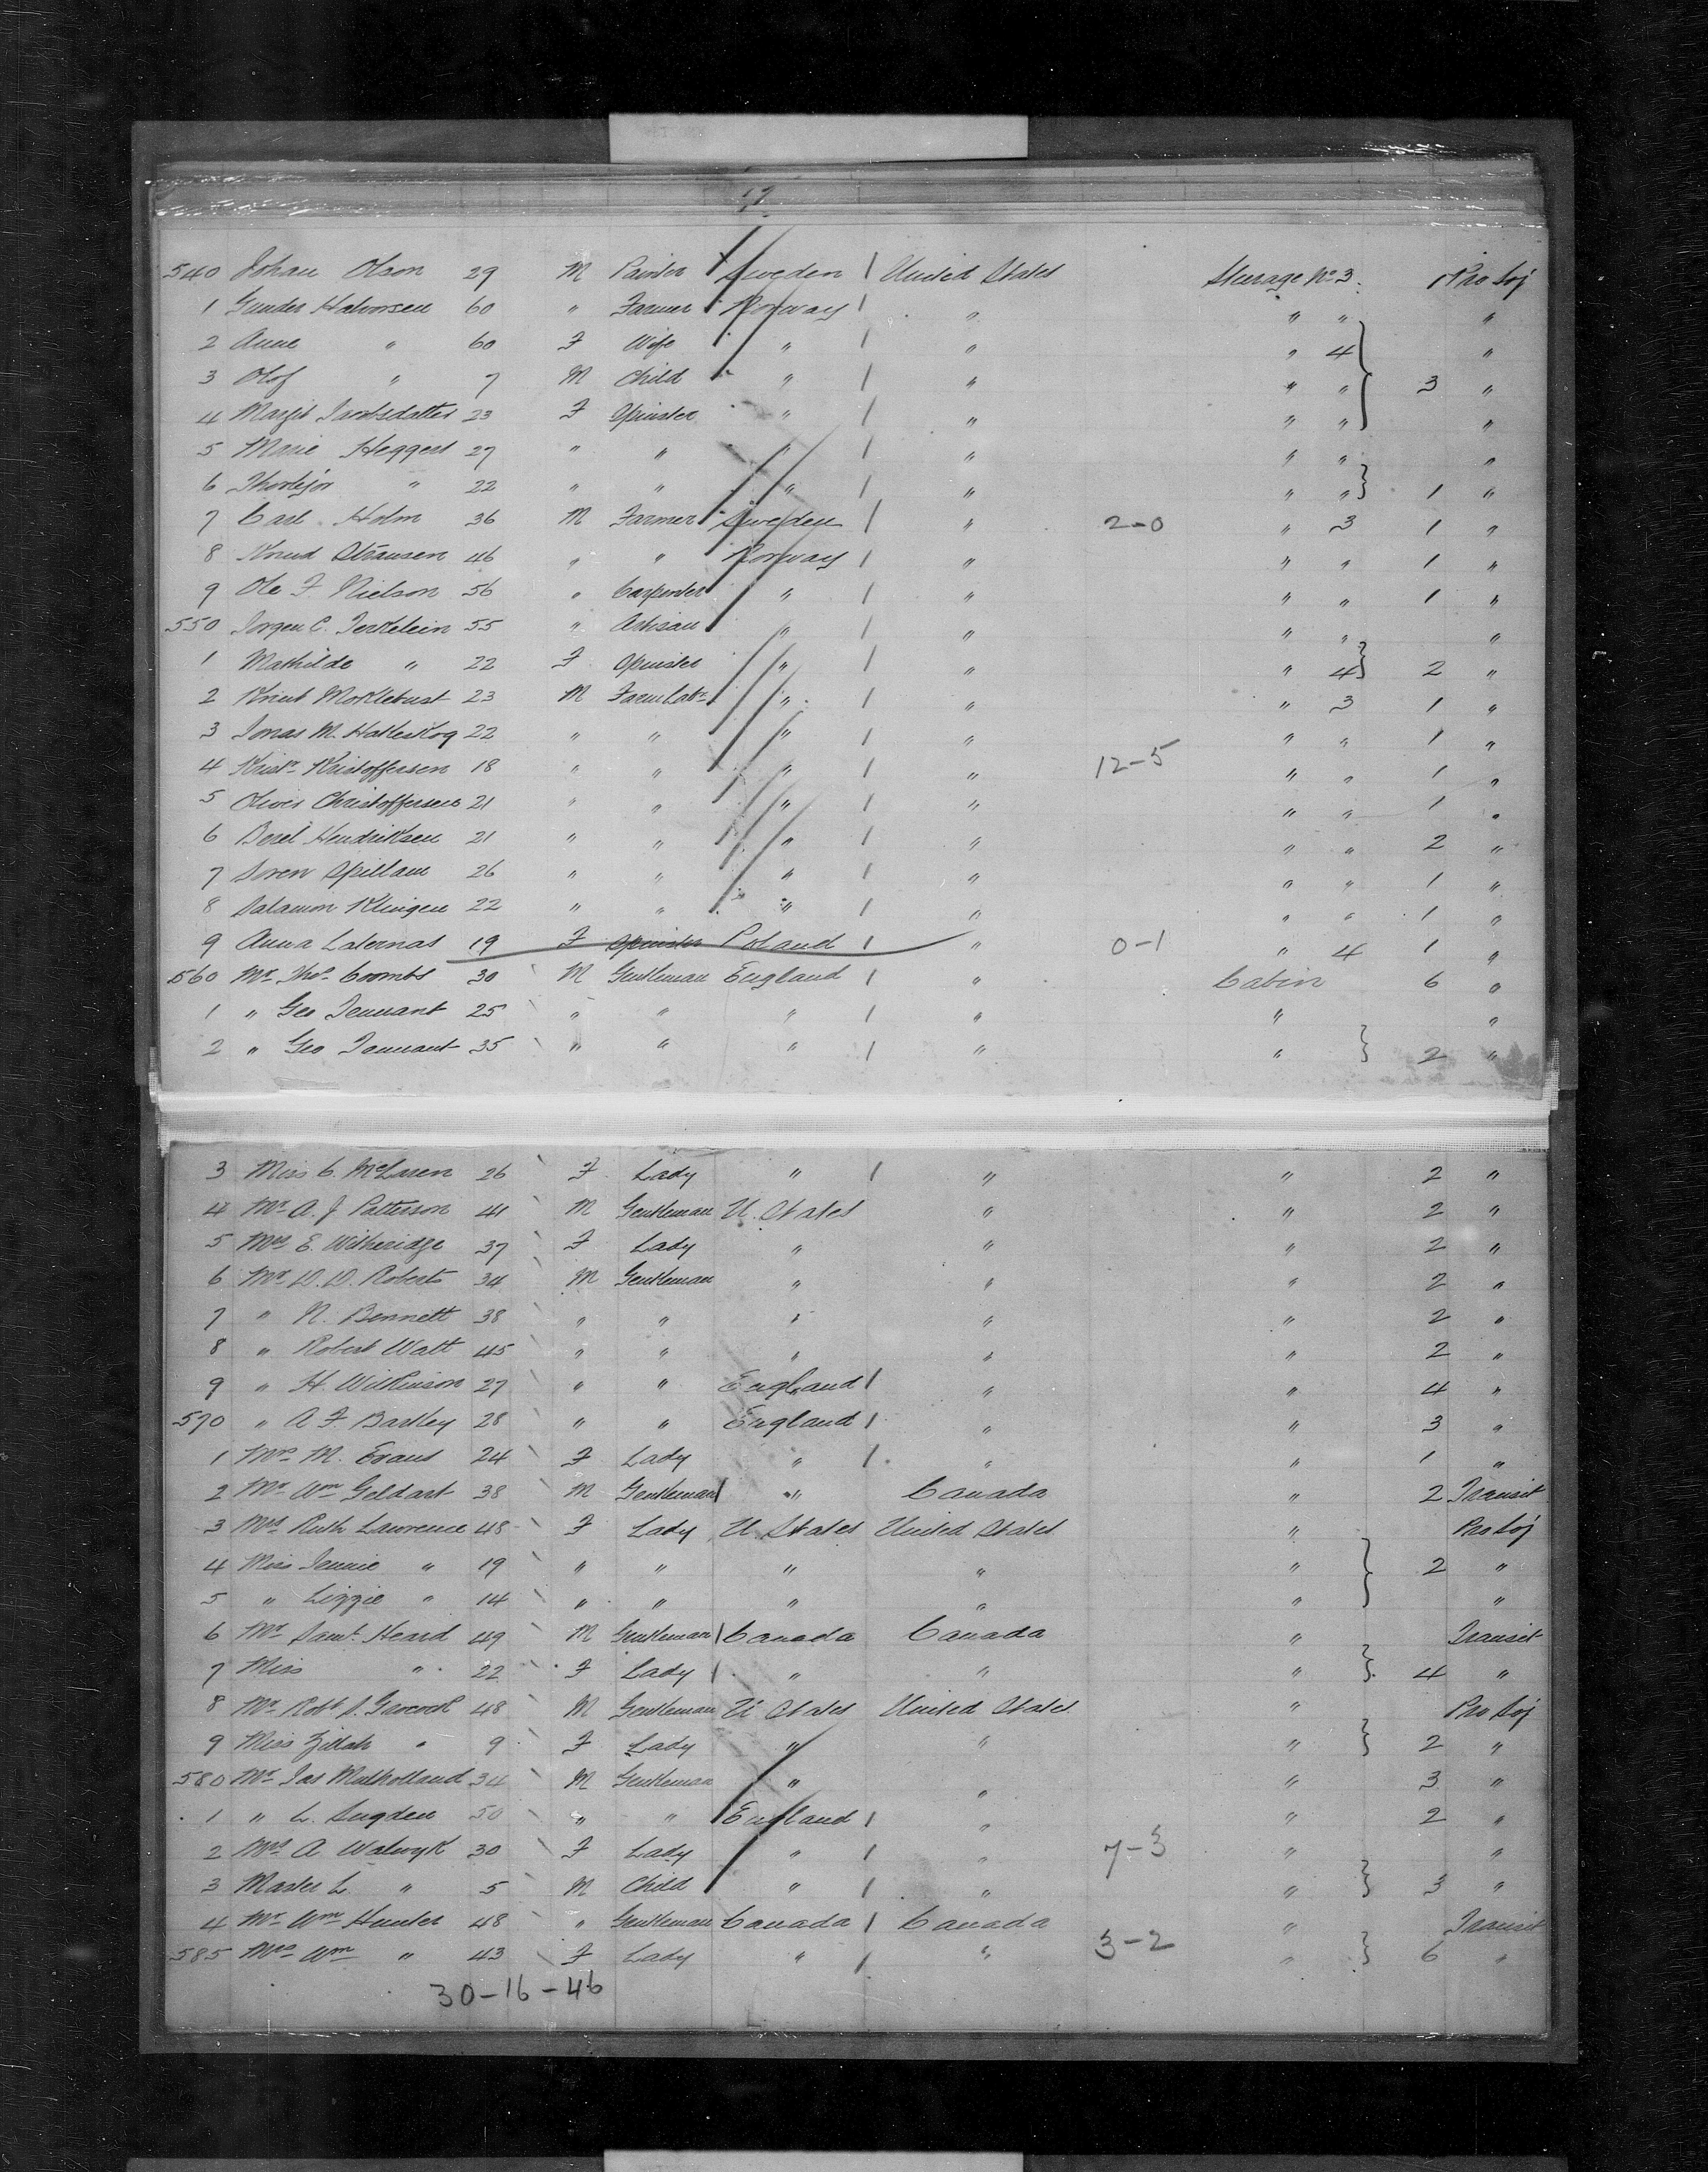 540 Johan Olson 29 M Painter Sweden 1 United States Steerage No 3. 1 Pro Soj
1 Gunder Halvorsen 60 " Farmer Norway 1 " " " "
2 Anne " 60 F Wife " 1 " " 4 "
3 Olof " 7 M Child " 1 " " " 3 "
4 Margit 23 F Spinster " 1 " " " "
5 Marie Heggest 27 " " " 1 " " " "
6 " 22 " " " 1 " " " 1 "
7 Carl Holm 36 M Farmer Sweden 1 " 2-0 " 3 1 "
8 Knud 46 " " Norway 1 " " " 1 "
9 Ole F. Nielson 56 " Carpenter " 1 " " " 1 "
550 Jorgen C. Terkelsin 55 " Artisan " 1 " " " "
1 Mathilde " 22 F Spinster " 1 " " 4 2 "
2 Knut Moklebust 23 M Farm Labr " 1 " " 3 1 "
3 Jonas M. 22 " " " 1 " " " 1 "
4 Kristn Kristoffersen 18 " " " 1 " 12-5 " " 1 "
5 Oliver Christoffersen 21 " " " 1 " " " 1 "
6 Hendriksen 21 " " " 1 " " " 2 "
7 Soren 26 " " " 1 " " " 1 "
8 Salamon Klingen 22 " " " 1 " " " 1 "
9 Anna Laternas 19 F Spinster Poland 1 " 0-1 " 4 1 "
560 Mr. Thos. Coombs 30 M Gentleman England 1 " Cabin 6 "
1 " Geo Tennant 25 " " " 1 " " "
2 " Geo Tennant 35 " " " 1 " " 2 "
3 Miss C. McLaren 26 F Lady " 1 " " 2 "
4 Mr A. J. Patterson 41 M Gentleman U. States " " 2 "
5 Mrs E. Witheridge 37 F Lady " " " 2 "
6 Mr D. D. Roberts 34 M Gentleman " " " 2 "
7 " N. Bennett 38 " " " " " 2 "
8 " Robert Watt 45 " " " " " 2 "
9 " H. Wilkinson 27 " " England 1 " " 4 "
570 " A F. Bartley 28 " " England 1 " " 3 "
1 Mrs M. Evans 24 F Lady " 1 " " 1 "
2 Mr Wm Geldart 38 M Gentleman 1 " Canada " 2 Transit
3 Mrs Ruth Lawrence 48 F Lady U. States United States " Pro Soj
4 Miss Jennie " 19 " " " " " 2 "
5 " Lizzie " 14 " " " " " "
6 Mr Saml. Heard 49 M Gentleman 1 Canada Canada " Transit
7 Miss " 22 F Lady 1 " " " 4 "
8 Mr Robt S. 48 M Gentleman U States United States " Pro Soj
9 Miss Zillah " 9 F Lady " " " 2 "
580 Mr Jas Mulholland 34 M Gentleman " " " 3 "
1 " L. Sugden 50 " " England 1 " " 2 "
2 Mrs A Walwyk 30 F Lady " 1 " 7-3 " "
3 Master L. " 5 M Child " 1 " " 3 "
4 Mr Wm Hunter 48 " Gentleman Canada 1 Canada " Transit
585 Mrs Wm " 43 F Lady " 1 " 3-2 " 6 "
30-16-46